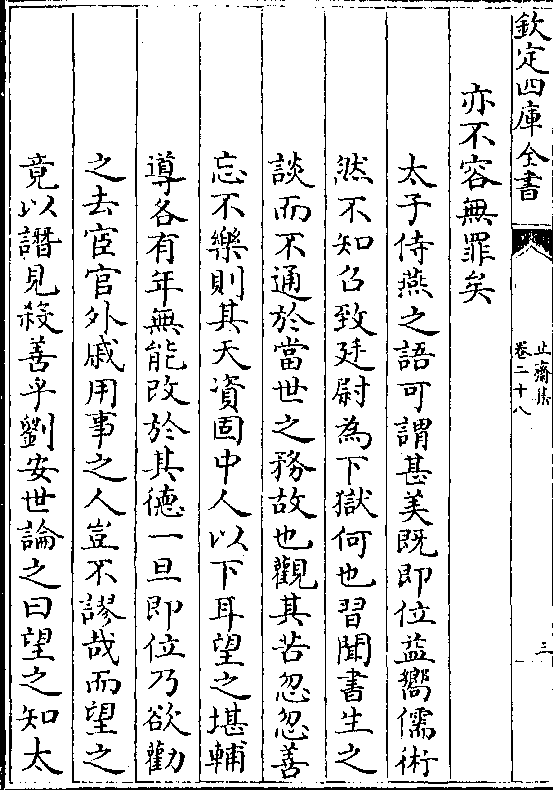 欽定四庫全書
止齋集
卷二十八
三
亦不容無罪矣
太子侍燕之語可謂甚美既即位益嚮儒術
然不知召致廷尉為下獄何也習聞書生之
談而不通於當世之務故也觀其苦忽忽善
忘不樂則其天資固中人以下耳望之堪輔
導各有年無能改於其德一旦即位乃欲勸
之去宦官外戚用事之人豈不謬哉而望之
竟以譖見殺善乎劉安世論之曰望之知太